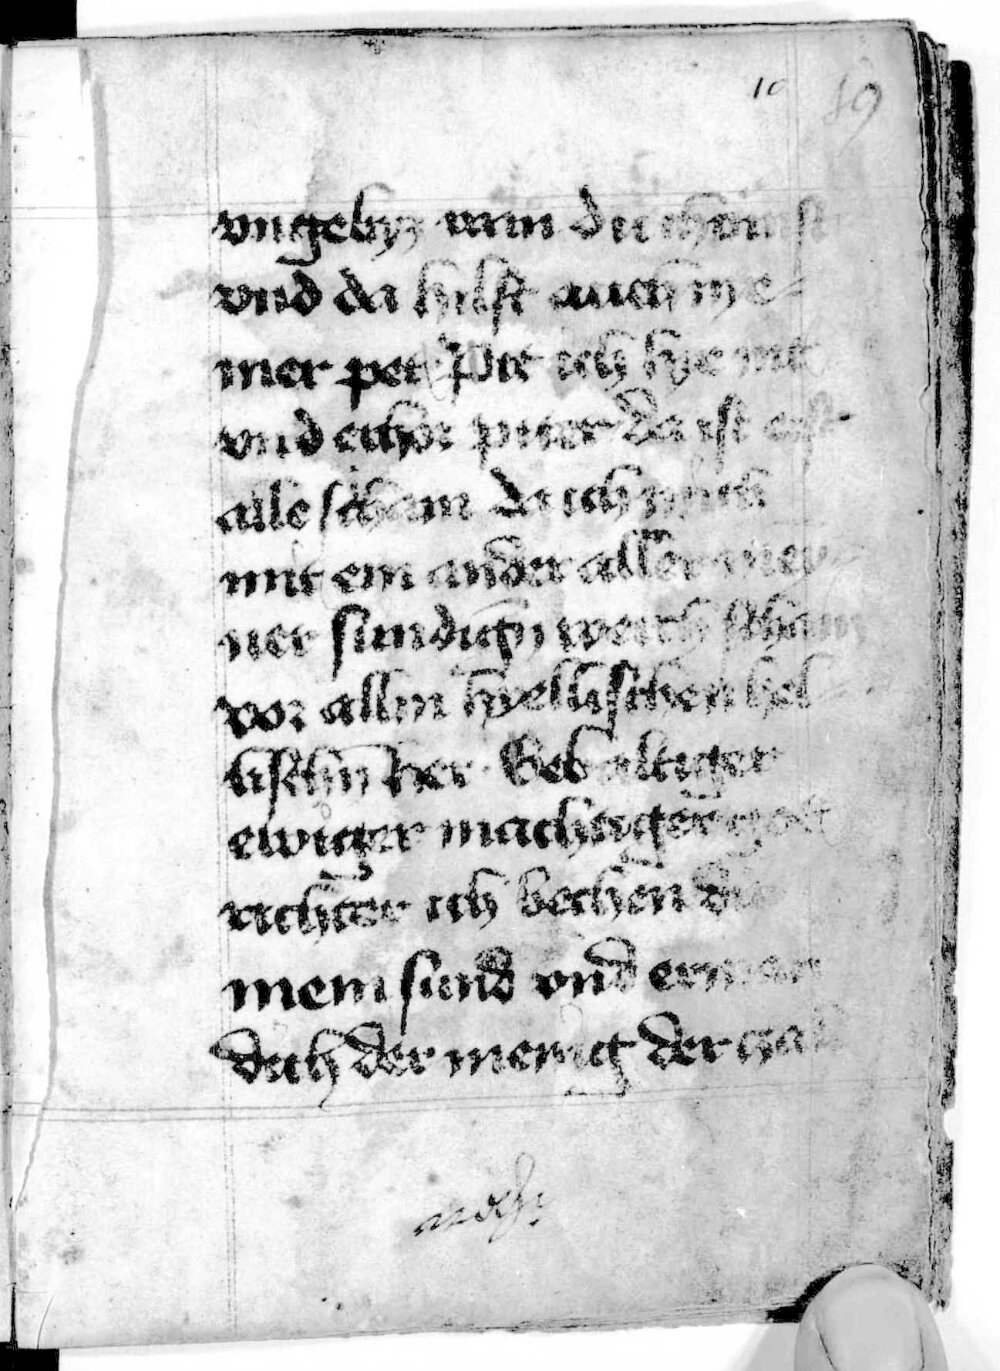 10 89
vngebyz wan du chomst
vnd da hilft auch nye
mer pet Pit ich hye nit
vnd echor piter da ist erst
alle scham da ich mich
mit ein ander aller mey
ner sundign werch scham
vor allin hyellischen hel
liſchin her Gebaltiger
ewiger machtiger got
richter ich bechen dir
mein sund vnd erman
dich der menig der